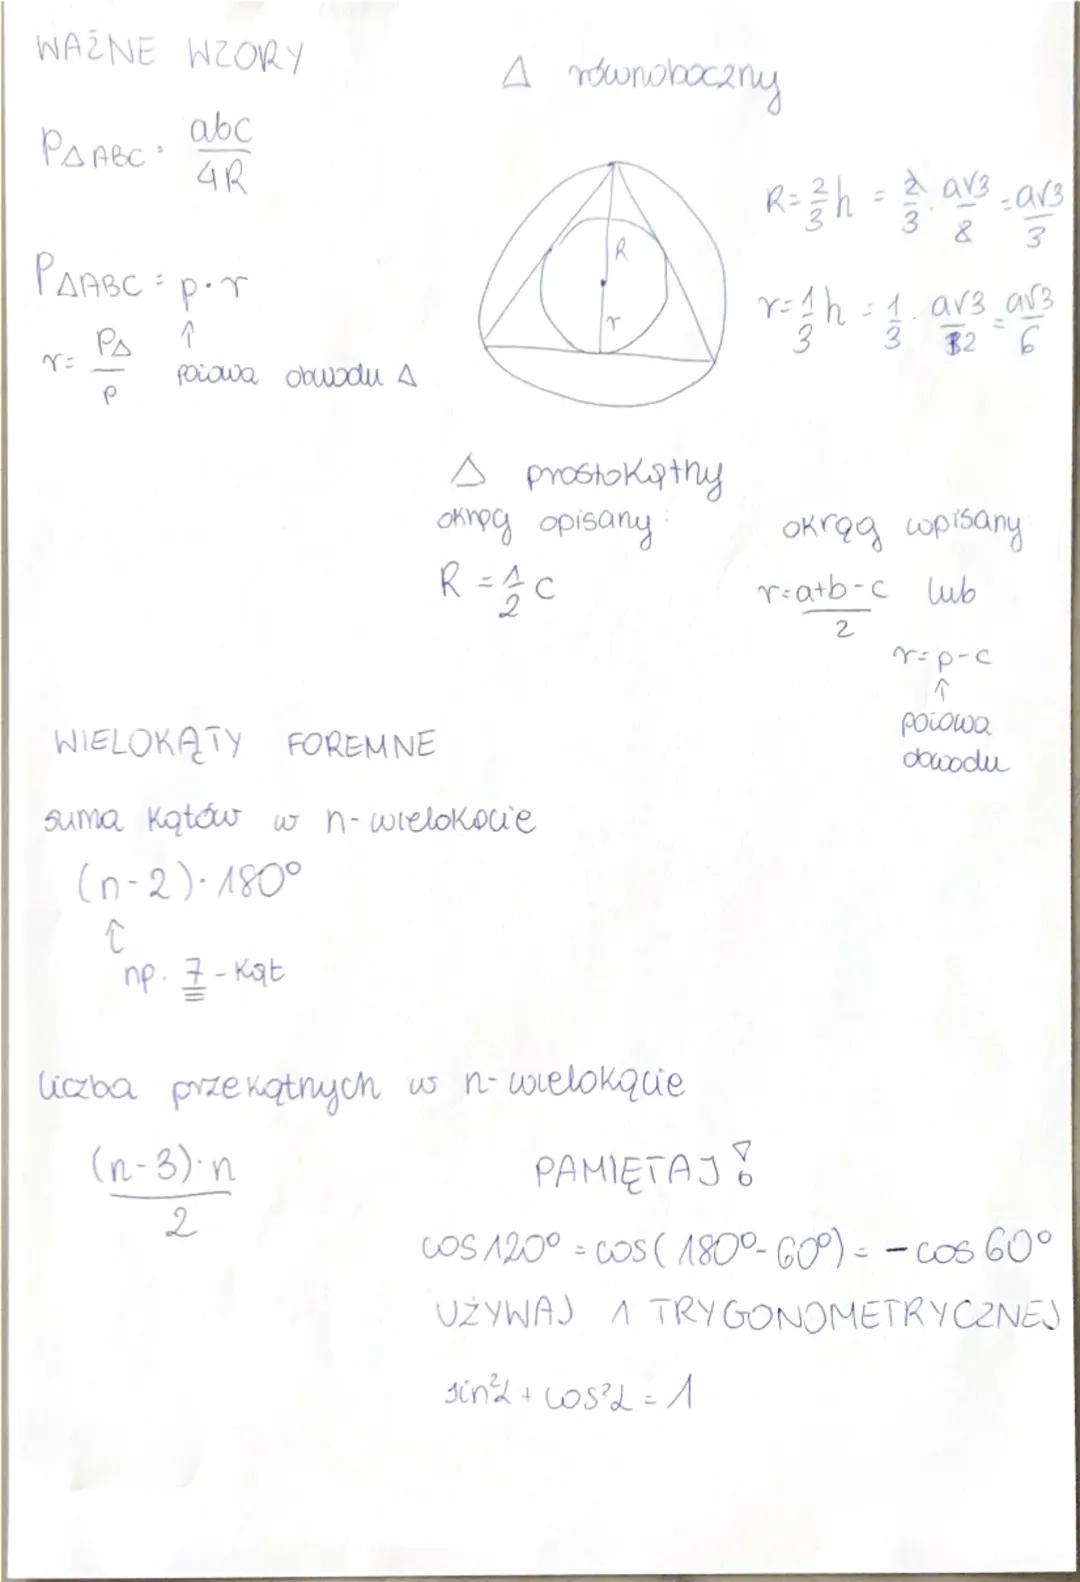 WAŻNE WZORY
P△ABC = abc/4R
P△ABC = p·r
↑
r = P△/p połowa obwodu △
△ równoboczny
R
r
R = 2/3 h = 2/3 · a√3/2 = a√3/3
r = 1/3 h = 1/3 · a√3/2 = a√3/6
△ prostokątny
okręg opisany:
R = 1/2 c
okrąg wpisany
r = a+b-c/2 lub
r = p-c
↑
połowa
obwodu
WIELOKĄTY FOREMNE
suma kątów w n-wielokącie
(n-2)·180°
↑
np. 7-kąt
liczba przekątnych w n-wielokącie
(n-3)·n/2
PAMIĘTAJ!
cos 120° = cos(180°-60°) = -cos 60°
UŻYWAJ 1 TRYGONOMETRYCZNEJ
sin²α + cos²α = 1